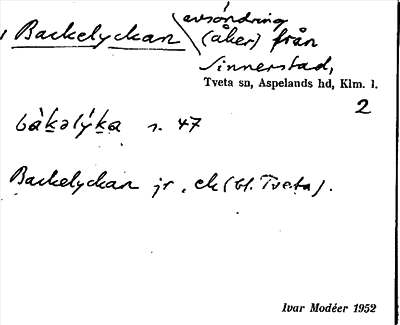 avsöndring
Backelyckan (åker) från
Sinnerstad,
Tveta sn, Aspelands hd, Klm. l.
2
bàkəlýka s. 47
Backelyckan jr, ek (bl. Tveta).
Ivar Modéer 1952